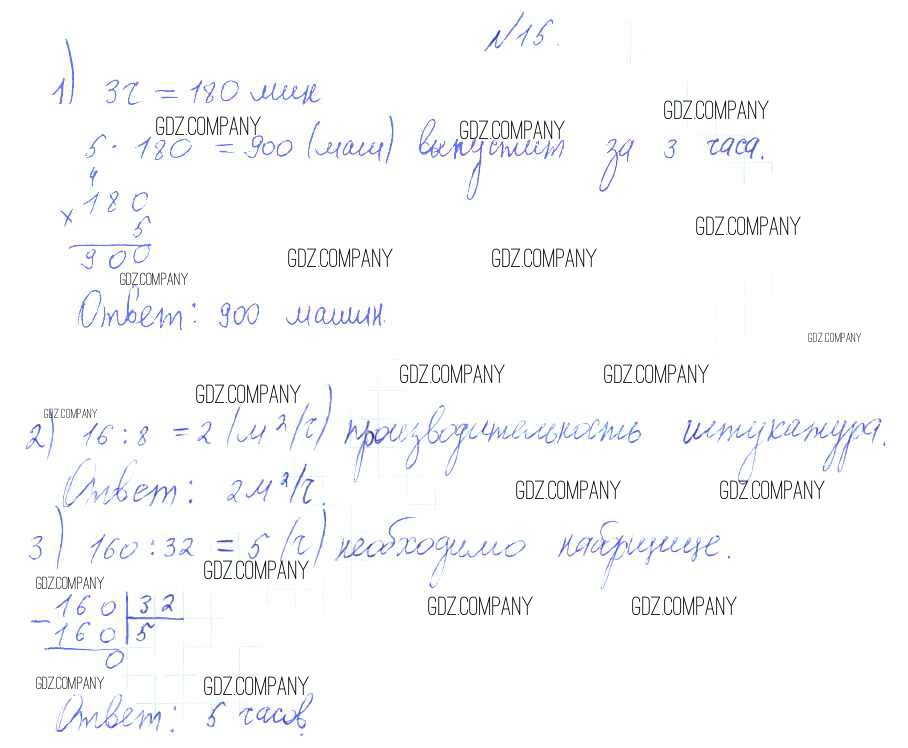 №15.
1) 3ч = 180 мин
GDZ.COMPANY GDZ.COMPANY GDZ.COMPANY
5 · 180 = 900 (маш) выпустит за 3 часа.
4
× 180
5
GDZ.COMPANY
900
GDZ.COMPANY GDZ.COMPANY GDZ.COMPANY
Ответ: 900 машин.
GDZ.COMPANY
GDZ.COMPANY GDZ.COMPANY GDZ.COMPANY
GDZ.COMPANY
2) 16 : 8 = 2 (м²/ч) производительность штукатура.
Ответ: 2м²/ч.
GDZ.COMPANY GDZ.COMPANY
3) 160 : 32 = 5 (ч) необходимо наборщице.
GDZ.COMPANY GDZ.COMPANY
– 160 | 32
160 | 5
GDZ.COMPANY GDZ.COMPANY
0
GDZ.COMPANY GDZ.COMPANY
Ответ: 5 часов.